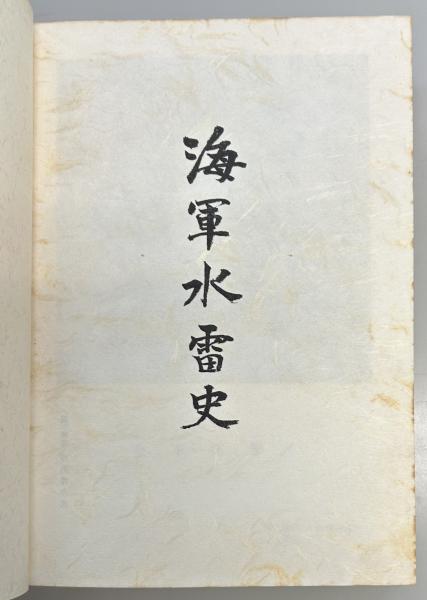 海軍水雷史